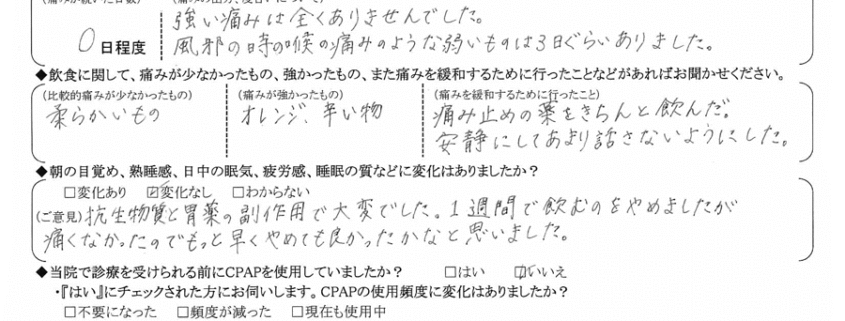 強い痛みは全くありませんでした。
0日程度 風邪の時の喉の痛みのような弱いものは3日ぐらいありました。
◆飲食に関して、痛みが少なかったもの、強かったもの、また痛みを緩和するために行ったことなどがあればお聞かせください。
(比較的痛みが少なかったもの) (痛みが強かったもの) (痛みを緩和するために行ったこと)
柔らかいもの オレンジ、辛い物 痛み止めの薬をきちんと飲んだ。
安静にしてあまり話さないようにした。
◆朝の目覚め、熟睡感、日中の眠気、疲労感、睡眠の質などに変化はありましたか?
□変化あり ☑変化なし □わからない
(ご意見) 抗生物質と胃薬の副作用で大変でした。1週間で飲むのをやめましたが
痛くなかったのでもっと早くやめても良かったかなと思いました。
◆当院で診療を受けられる前にCPAPを使用していましたか? □はい ☑いいえ
・『はい』にチェックされた方にお伺いします。CPAPの使用頻度に変化はありましたか?
□不要になった □頻度が減った □現在も使用中